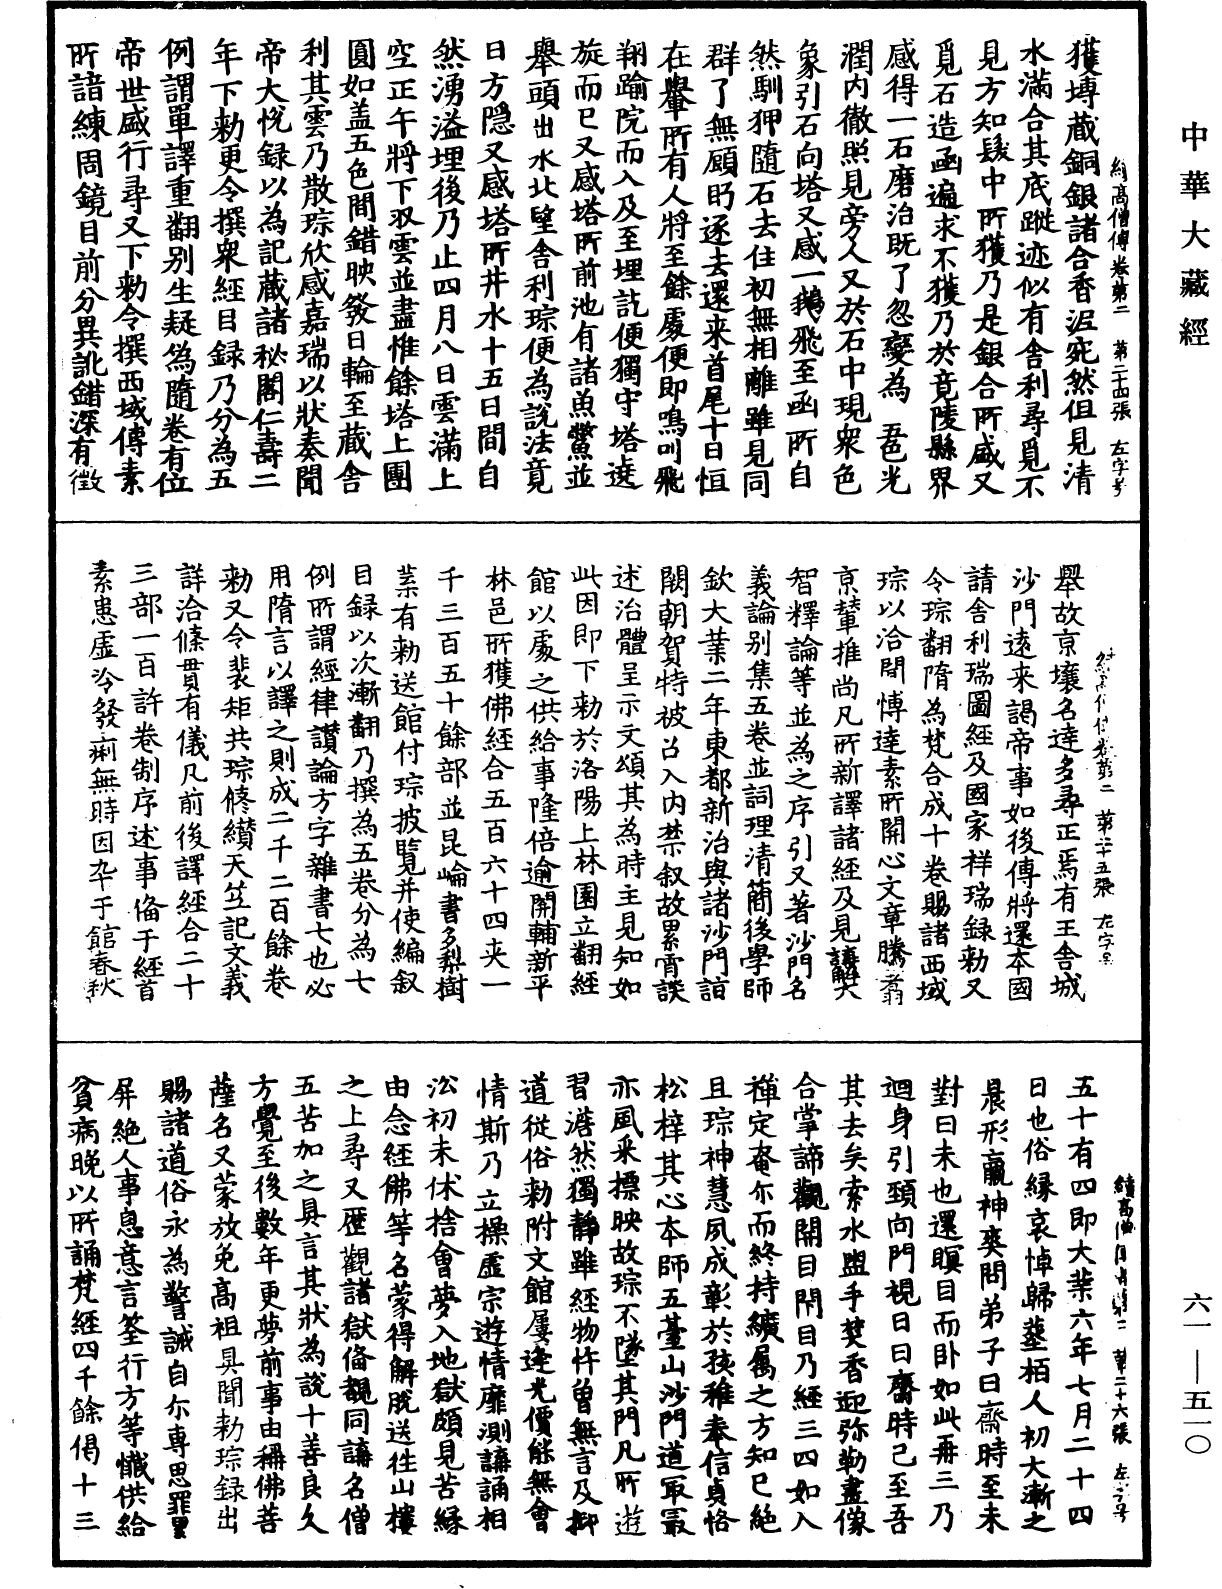 中華大藏經
續高僧傳卷第二　第二十四張　左字号
獲塼藏銅銀諸合香泥宛然但見清
水滿合其底蹤迹似有舍利尋覓不
見方知髮中所獲乃是銀合所盛又
覓石造函遍求不獲乃於竟陵縣界
感得一石磨治既了忽變為　邑光
潤内徹照見旁人又於石中現衆色
象引石向塔又感一鵝飛至函所自
然馴狎隨石去住初無相離雖見同
群了無顧眄逐去還来首尾十日恒
在轝所有人將至餘處便即鳴叫飛
翔踰院而入及至埋訖便獨守塔遶
旋而已又感塔所前池有諸魚鱉並
舉頭出水北望舍利琮便為說法竟
日方隱又感塔所井水十五日間自
然湧溢埋後乃止四月八日雲滿上
空正午將下双雲並盡惟餘塔上團
圓如盖五色間錯映發日輪至藏舍
利其雲乃散琮欣感嘉瑞以狀奏聞
帝大恱録以為記藏諸秘閣仁壽二
年下勑更令撰衆經目録乃分為五
例謂單譯重翻別生疑偽隨卷有位
帝世盛行尋又下勑令撰西域傳素
所諳練周鏡目前分異訛錯深有徵
第二十五張
舉故京壤名達多尋正焉有王舎城
沙門遠来謁帝事如後傳將還本國
請舎利瑞圖經及國家祥瑞録勑又
令琮翻隋為梵合成十卷賜諸西域
琮以洽聞愽達素所開心文章騰翥
京輦推尚凡所新譯諸經及見講解大
智釋論等並為之序引又著沙門名
義論別集五卷並詞理清簡後學師
欽大業二年東都新治與諸沙門詣
闕朝賀特被召入内禁叙故累宵談
述治體呈示文頌其為時主見知如
此因即下勑於洛陽上林園立翻經
館以處之供給事隆倍逾關輔新平
林邑所獲佛經合五百六十四夾一
千三百五十餘部並昆崘書多梨樹
葉有勑送館付琮披覽并使編叙
目録以次漸翻乃撰為五卷分為七
例所謂經律讚論方字雜書七也必
用隋言以譯之則成二千二百餘卷
勑又令裴矩共琮修纘天竺記文義
詳洽條貫有儀凡前後譯經合二十
三部一百許卷制序述事俻于經首
素患虛冷發痢無時因卒于館春秋
第二十六張
五十有四即大業六年七月二十四
日也俗縁哀悼歸塟栢人初大漸之
晨形羸神爽問弟子曰齋時至未
對曰未也還瞑目而卧如此再三乃
迴身引頸向門視日曰齋時已至吾
其去矣索水盥手焚香迎弥勒畫像
合掌諦觀開目閇目乃經三四如入
禪定奄尒而終持纊屬之方知已絶
且琮神慧夙成彰於孩稚奉信貞恪
松梓其心本師五臺山沙門道最
亦風采摽映故琮不墜其門凡所遊
習澹然獨靜雖經物忤曽無言及抑
道從俗勑附文館屢逢光價能無會
情斯乃立操虛宗遊情靡測講誦相
㳂初未休捨會夢入地獄頗見苦縁
由念經佛等名蒙得解脱送往山樓
之上尋又歷觀諸獄俻覩同講名僧
五苦加之具言其狀為説十善良久
方覺至後數年更夢前事由稱佛菩
薩名又蒙放免高祖具聞勑琮録出
賜諸道俗永為警誡自尒專思罪累
屏絶人事息意言筌行方等懺供給
貧病晚以所誦梵經四千餘偈十三
六一—五一〇